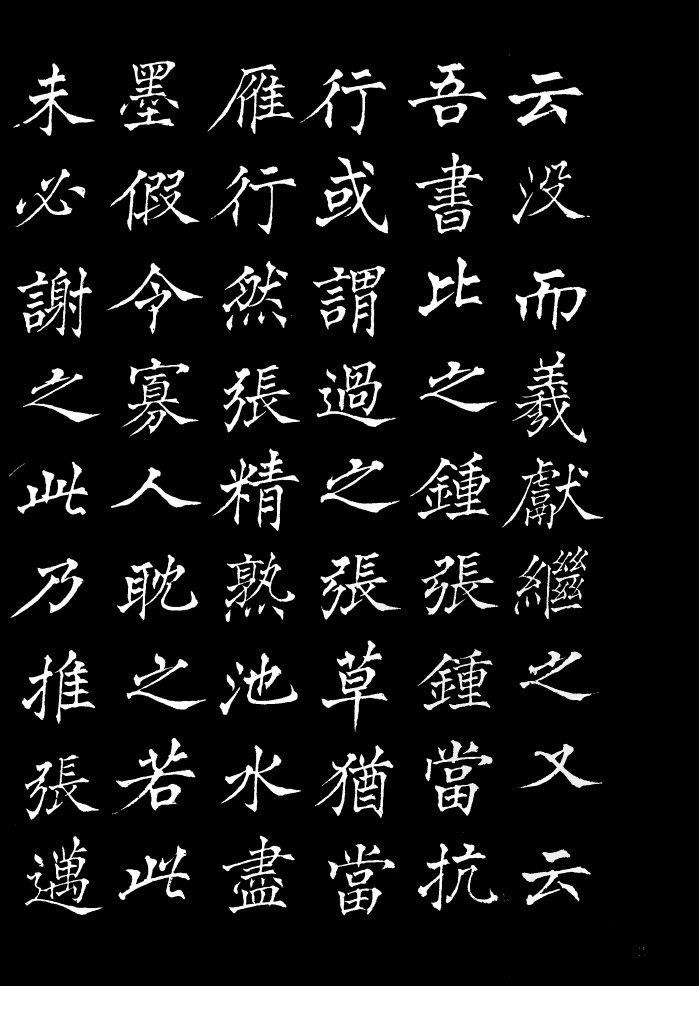 云没而羲獻繼之又云
吾書比之鍾張鍾當抗
行或謂過之張草猶當
雁行然張精熟池水盡
墨假令寡人耽之若此
未必謝之此乃推張邁